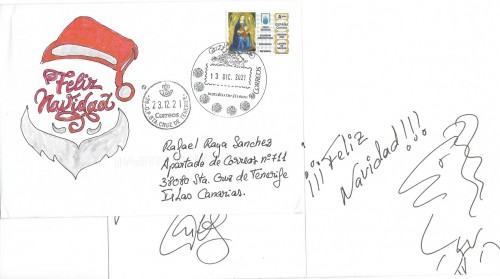 Feliz
Navidad
ESPAÑA
CORREOS
13 DIC. 2021
CORREOS
23.12.21
Correos
STA. CRUZ DE TENERIFE
Rafael Raya Sanchez
Apartado de Correos nº 711
38080 Sta. Cruz de Tenerife
Islas Canarias.
¡¡¡Feliz
Navidad!!!